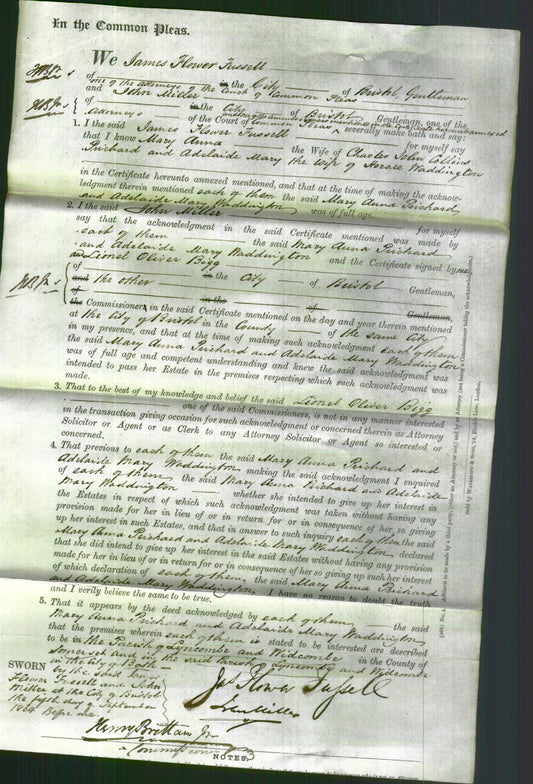 In the Common Pleas.
We James Flower Fussell
of in the City of Bristol, Gentleman
one of the attorneys of the Court of Common Pleas
and John Miller
of in the City of Bristol Gentleman, one of the
attorneys of the Court of Common Pleas, severally make bath and say:
1. I the said James Flower Fussell for myself say
that I know Mary Anna the Wife of Charles John Collins
Prichard and Adelaide Mary the wife of Horace Waddington
in the Certificate hereunto annexed mentioned, and that at the time of making the acknow-
ledgment therein mentioned each of them the said Mary Anna Prichard
and Adelaide Mary Waddington was of full age.
2. I the said John Miller for myself
say that the acknowledgment in the said Certificate mentioned was made by
each of them the said Mary Anna Prichard
and Adelaide Mary Waddington and the Certificate signed by me
and Lionel Oliver Bigg
of in the City of Bristol Gentleman,
and the other
of in the of Gentleman,
the Commissioners in the said Certificate mentioned on the day and year therein mentioned
at the City of Bristol in the County of the same City
in my presence, and that at the time of making such acknowledgment each of them
the said Mary Anna Prichard and Adelaide Mary Waddington
was of full age and competent understanding and knew the said acknowledgment was
intended to pass her Estate in the premises respecting which such acknowledgment was
made.
3. That to the best of my knowledge and belief the said Lionel Oliver Bigg
one of the said Commissioners, is not in any manner interested
in the transaction giving occasion for such acknowledgment or concerned therein as Attorney
Solicitor or Agent or as Clerk to any Attorney Solicitor or Agent so interested or
concerned.
4. That previous to each of them the said Mary Anna Prichard and
Adelaide Mary Waddington making the said acknowledgment I enquired
of each of them the said Mary Anna Prichard and Adelaide
Mary Waddington whether she intended to give up her interest in
the Estates in respect of which such acknowledgment was taken without having any
provision made for her in lieu of or in return for or in consequence of her, so giving
up her interest in such Estates, and that in answer to such inquiry each of them the said
Mary Anna Prichard and Adelaide Mary Waddington, declared
that she did intend to give up her interest in the said Estates without having any provision
made for her in lieu of or in return for or in consequence of her so giving up such her interest
of which declaration of each of them, the said Mary Anna Prichard
and Adelaide Mary Waddington I have no reason to doubt the truth
and I verily believe the same to be true.
5. That it appears by the deed acknowledged by each of them the said
Mary Anna Prichard and Adelaide Mary Waddington
that the premises wherein each of them is stated to be interested are described
to be in the Parish of Lyncombe and Widcombe in the County of
Somerset and in the said Parish of Lyncombe and Widcombe
in the City of Bath
SWORN by the said James
Flower Fussell and John
Miller at the City of Bristol
the day of September
Before me
Jas Flower Fussell
Jno Miller
Henry Brittan Jr
a Commissioner
NOTES.